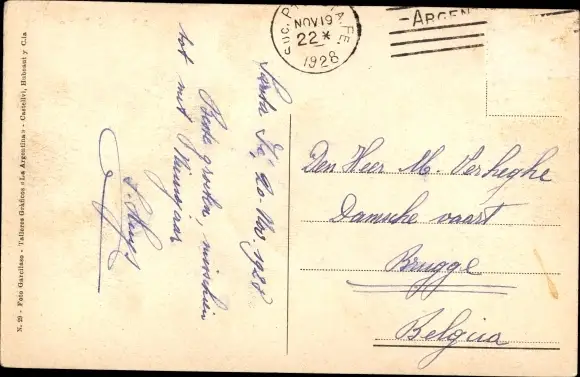 SUC. P FE.
NOV. 19
22*
1928
- ARGEN
Santa Fé, 20 - Nov. 1928
Beste groeten, misschien
tot met Nieuwjaar
Den Heer M. Verheghe
Damsche vaart
Brugge
Belgica
N. 29 - Foto Garcilaso - Talleres Gráficos «La Argentina» - Castellví, Hubeaut y Cía